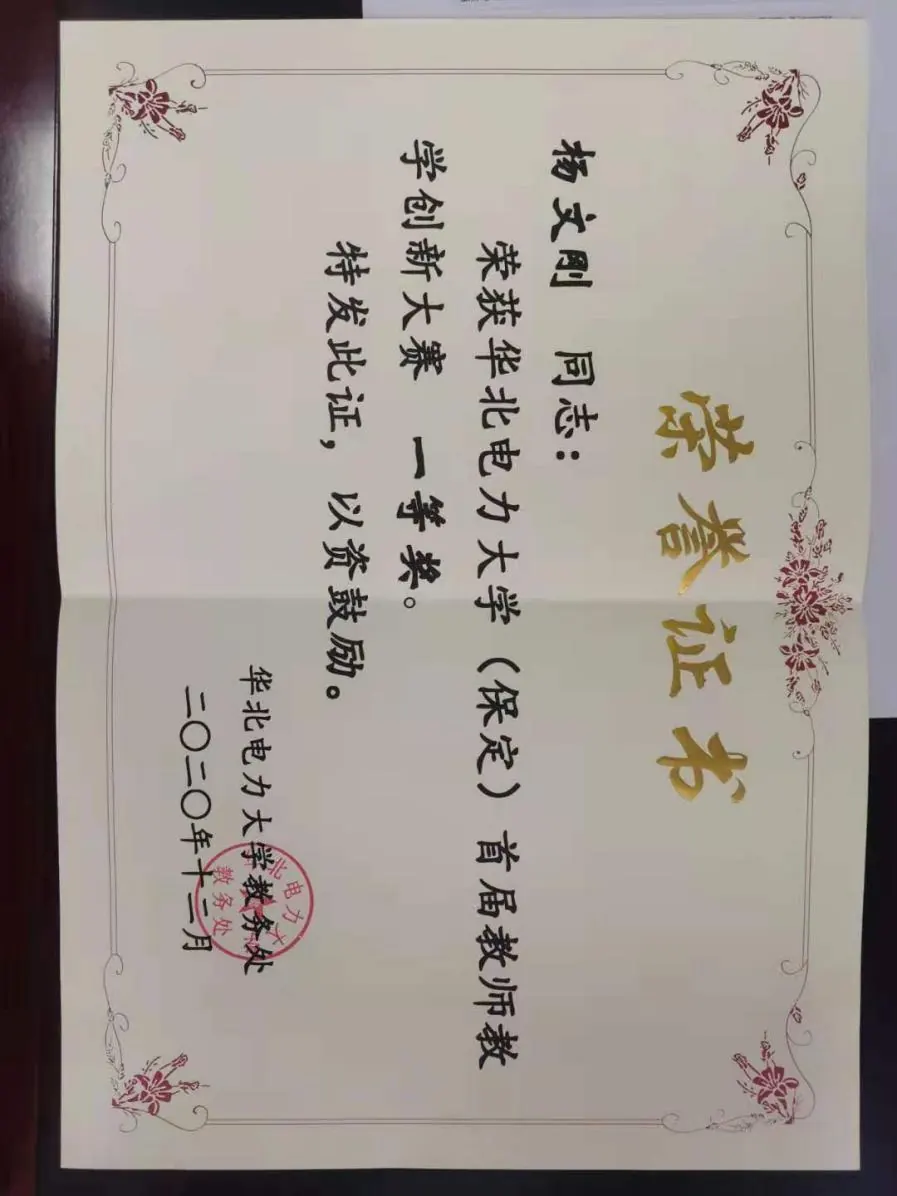 荣誉证书
杨文刚 同志：
荣获华北电力大学（保定）首届教师教
学创新大赛 一等奖。
特发此证，以资鼓励。
华北电力大学教务处
二〇二〇年十二月
北电力大
教务处